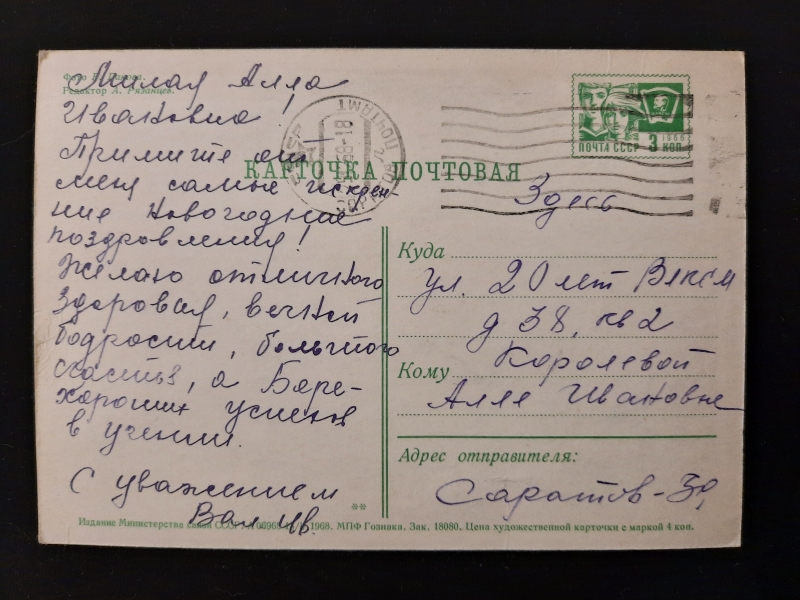 Фото
Редактор А. Рязанцев.
Милая Алла
Ивановна!
Примите от
меня самые искрен-
ние Новогодние
поздравления!
Желаю отличного
здоровья, вечной
бодрости, большого
счастья, а Бере-
хороших успехов
в учении.
С уважением
ПОЧТА СССР 3 КОП
1966
КАРТОЧКА ПОЧТОВАЯ
Здесь
Куда
ул. 20 лет Влксм
д 38, кв 2
Кому Королевой
Алле Ивановне
Адрес отправителя:
Саратов-
**
Издание Министерства связи СССР 1968. МПФ Гознака. Зак. 18080. Цена художественной карточки с маркой 4 коп.